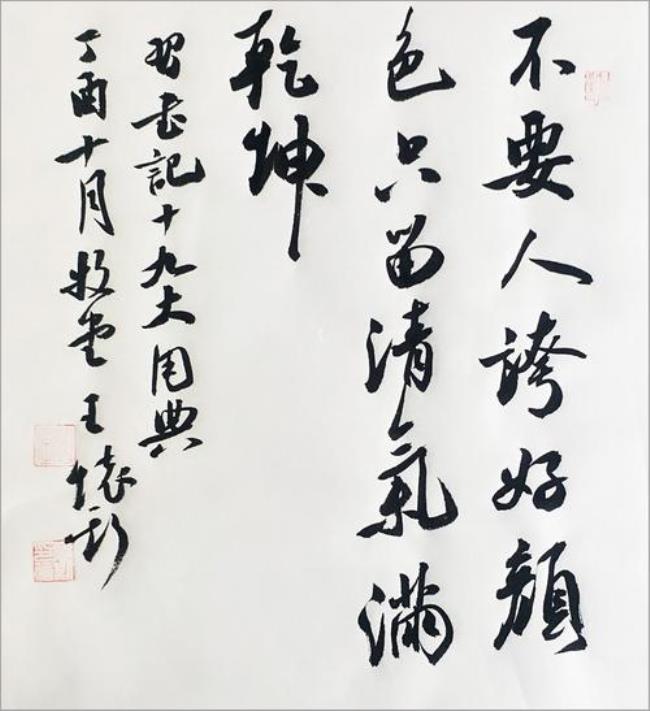 不要人誇好顏
色只留清氣滿
乾坤
習書記十九大用典
丁酉十月牧童王懷